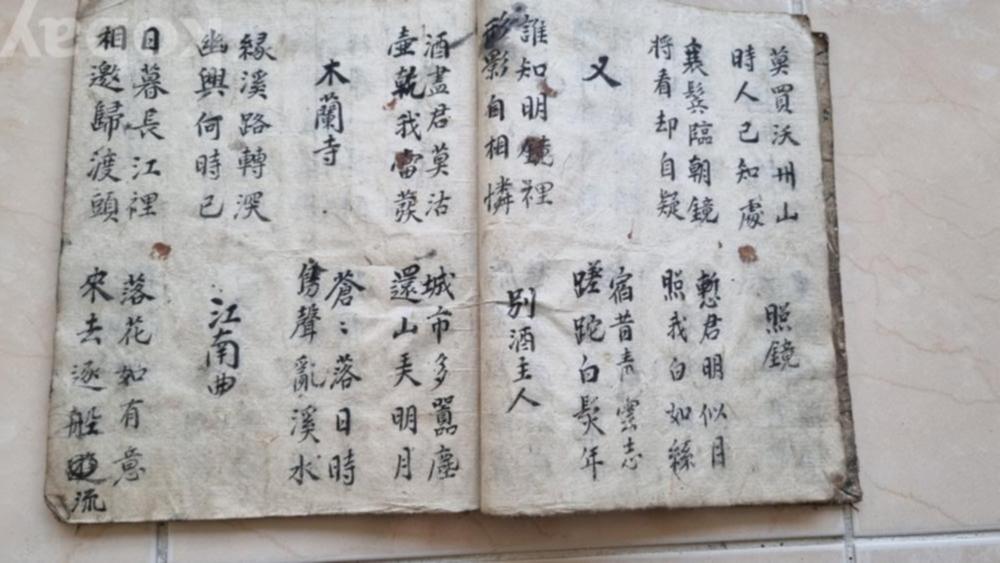 莫買沃州山
時人已知處
照鏡
襄鬂臨朝鏡
將看却自疑
慙君明似月
照我白如絲
又
宿昔靑雲志
蹉跎白髮年
誰知明鏡裡
形影自相憐
別酒主人
酒盡君莫沽
壺乾我當發
城市多囂塵
還山美明月
木蘭寺
蒼〻落日時
鳥聲亂溪水
緣溪路轉深
幽興何時已
江南曲
日暮長江裡
相邀歸渡頭
落花如有意
来去逐船流